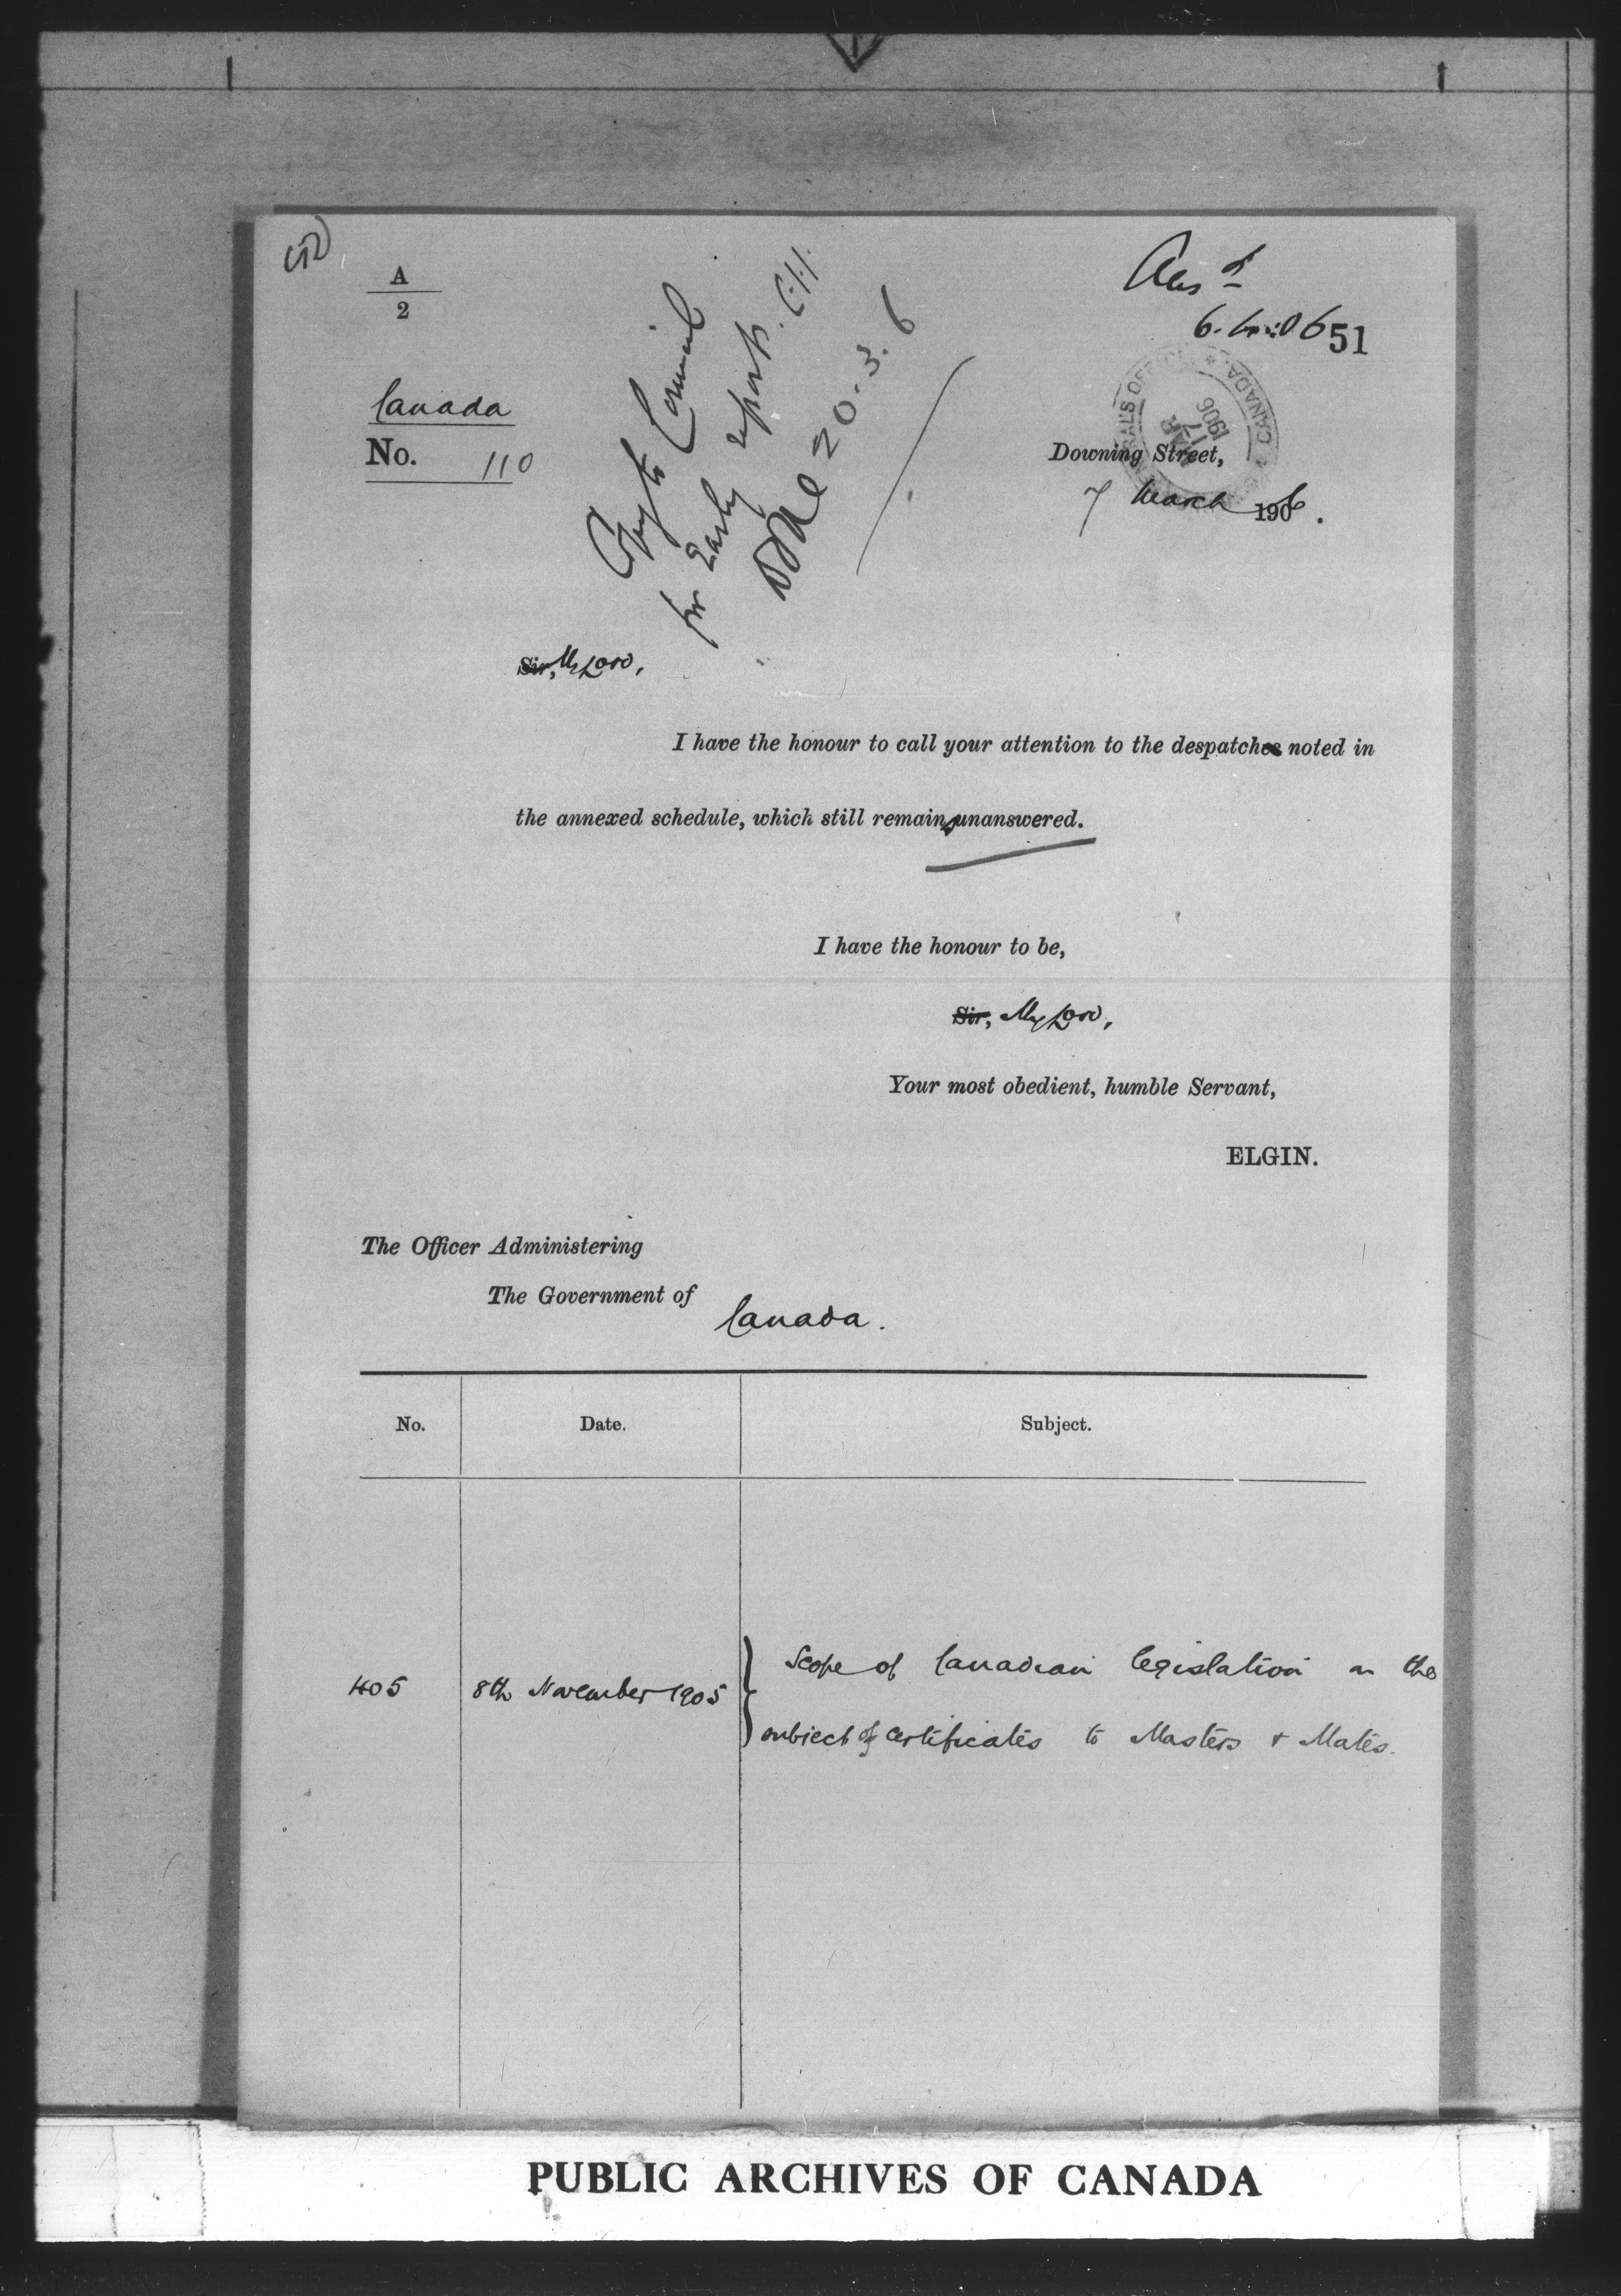 A
2
Canada
No. 110
Copy to Council
for early report. C.H.
20.3.6
Ansd
6.4.06
51
CANADA
17
1906
Downing Street,
7 March 1906.
Sir, My Lord,
I have the honour to call your attention to the despatches noted in
the annexed schedule, which still remains unanswered.
I have the honour to be,
Sir, My Lord,
Your most obedient, humble Servant,
ELGIN.
The Officer Administering
The Government of
Canada.
No. Date. Subject.
405 8th November 1905 } Scope of Canadian legislation on the
subject of certificates to Masters & Mates.
PUBLIC ARCHIVES OF CANADA